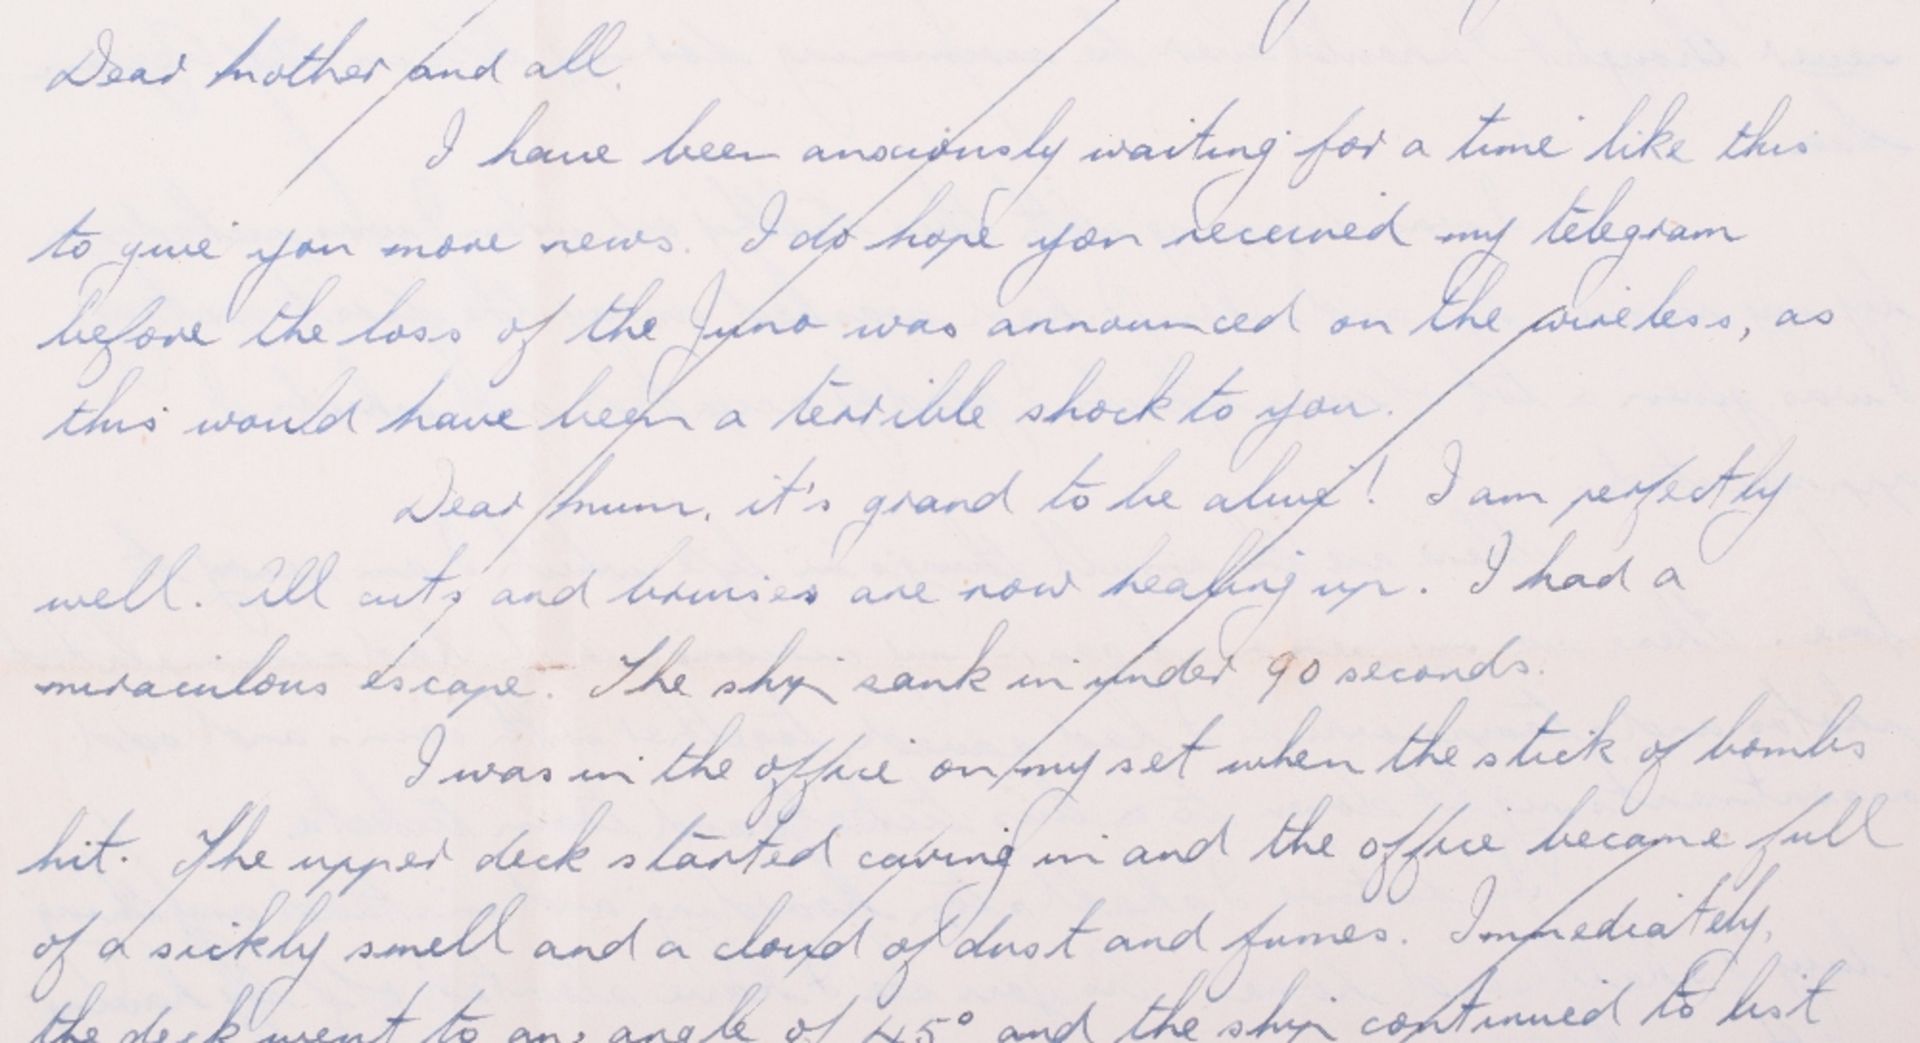 Dear Mother and all.
I have been anxiously waiting for a time like this
to give you more news. I do hope you received my telegram
before the loss of the Juno was announced on the wireless, as
this would have been a terrible shock to you.
Dear Mum, it's grand to be alive! I am perfectly
well. All cuts and bruises are now healing up. I had a
miraculous escape. The ship sank in under 90 seconds.
I was in the office on my set when the stick of bombs
hit. The upper deck started caving in and the office became full
of a sickly smell and a cloud of dust and fumes. Immediately,
the deck went to an angle of 45° and the ship continued to list